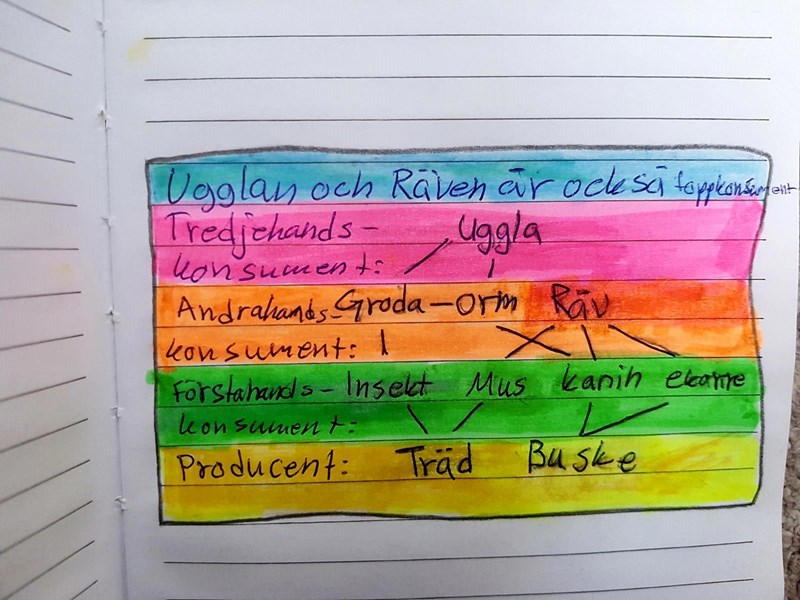 Ugglan och Räven är också toppkonsument
Tredjehands- Uggla
konsument:
Andrahands- Groda - orm Räv
konsument:
Förstahands- Insekt Mus kanin ekorre
konsument:
Producent: Träd Buske